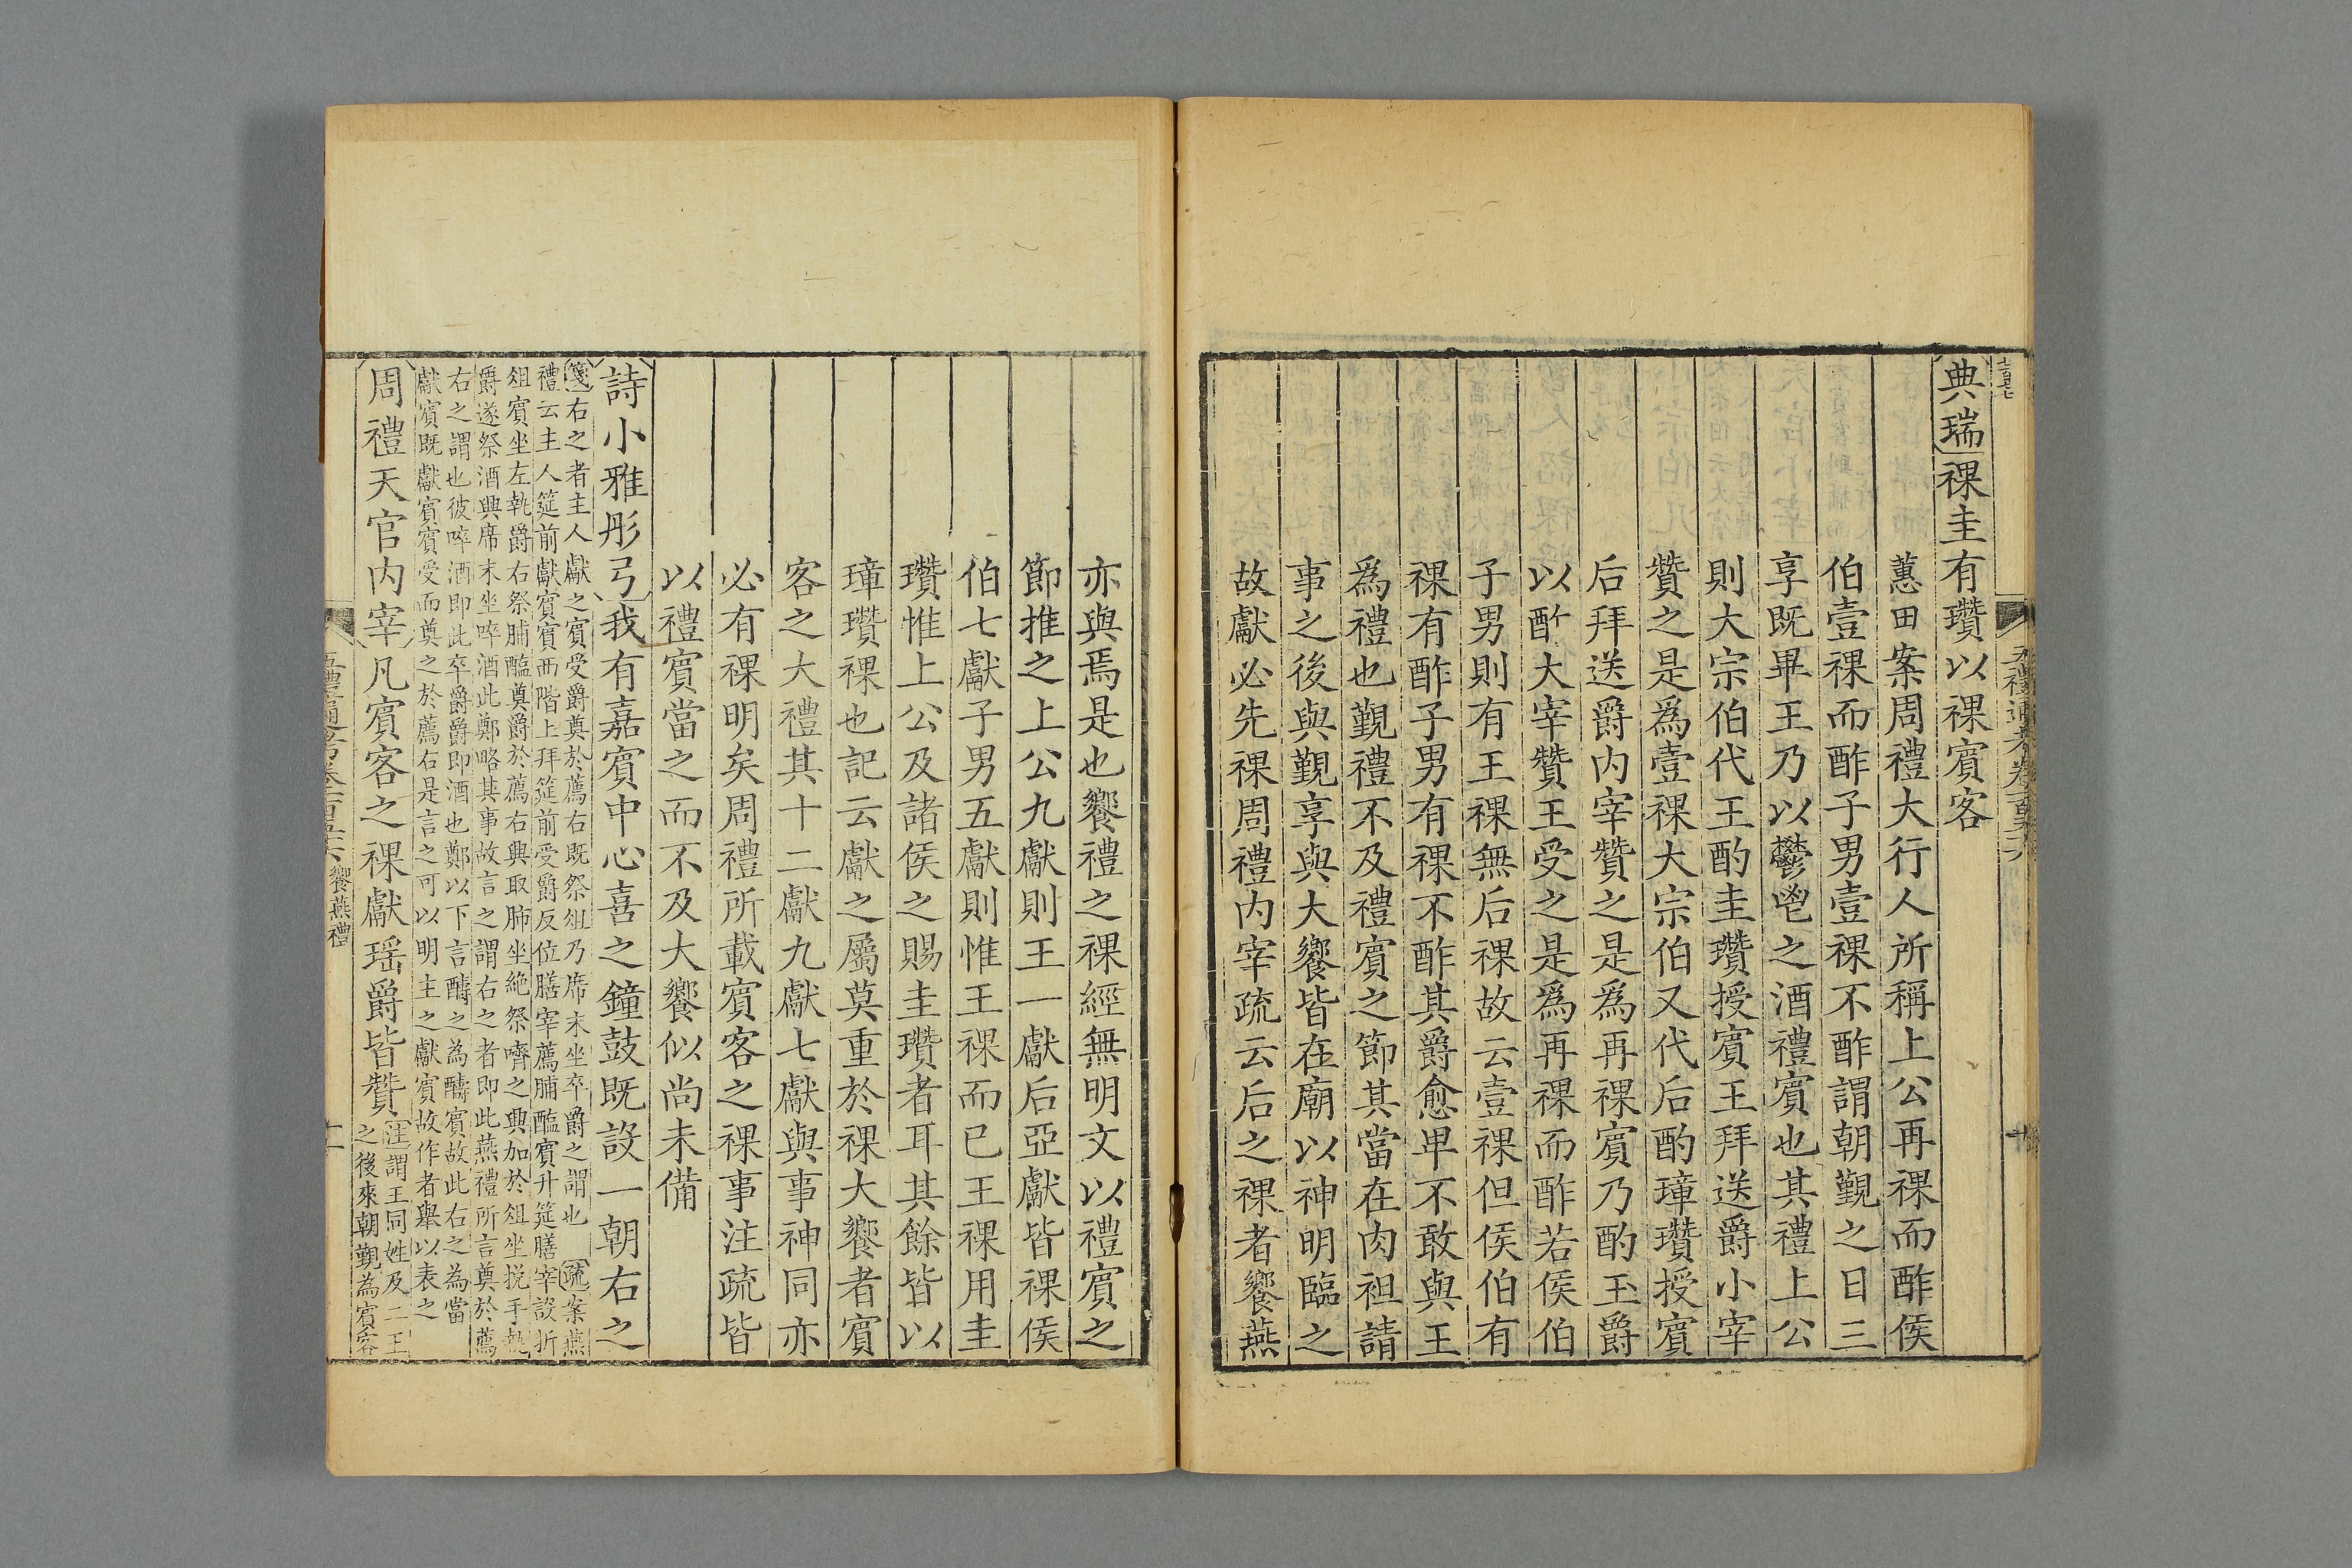 典瑞祼圭有瓚以祼賓客
蕙田案周禮大行人所稱上公再祼而酢侯
伯壹祼而酢子男壹祼不酢謂朝覲之日三
享既畢王乃以鬱鬯之酒禮賓也其禮上公
則大宗伯代王酌圭瓚授賓王拜送爵小宰
贊之是爲壹祼大宗伯又代后酌璋瓚授賓
后拜送爵内宰贊之是爲再祼賓乃酌玉爵
以酢大宰贊王受之是爲再祼而酢若侯伯
子男則有王祼無后祼故云壹祼但侯伯有
祼有酢子男有祼不酢其爵愈卑不敢與王
爲禮也覲禮不及禮賓之節其當在肉袒請
事之後與覲享與大饗皆在廟以神明臨之
故獻必先祼周禮内宰疏云后之祼者饗燕
亦與焉是也饗禮之祼經無明文以禮賓之
節推之上公九獻則王一獻后亞獻皆祼侯
伯七獻子男五獻則惟王祼而已王祼用圭
瓚惟上公及諸侯之賜圭瓚者耳其餘皆以
璋瓚祼也記云獻之屬莫重於祼大饗者賓
客之大禮其十二獻九獻七獻與事神同亦
必有祼明矣周禮所載賓客之祼事注疏皆
以禮賓當之而不及大饗似尚未備
詩小雅彤弓我有嘉賓中心喜之鐘鼓既設一朝右之
箋右之者主人獻之賓受爵奠於薦右既祭俎乃席末坐卒爵之謂也 疏案燕
禮云主人筵前獻賓賓西階上拜筵前受爵反位膳宰薦脯醢賓升筵膳宰設折
俎賓坐左執爵右祭脯醢奠爵於薦右興取肺坐絶祭嚌之興加於俎坐挩手執
爵遂祭酒興席末坐啐酒此鄭略其事故言之謂右之者即此燕禮所言奠於薦
右之謂也彼啐酒即此卒爵爵即酒也鄭以下言醻之為醻賓故此右之為當
獻賓既獻賓賓受而奠之於薦右是言之可以明主之獻賓故作者舉以表之
周禮天官内宰凡賓客之祼獻瑶爵皆贊
注謂王同姓及二王
之後來朝覲為賓客
五禮通考卷一百五十六 饗燕禮
十一